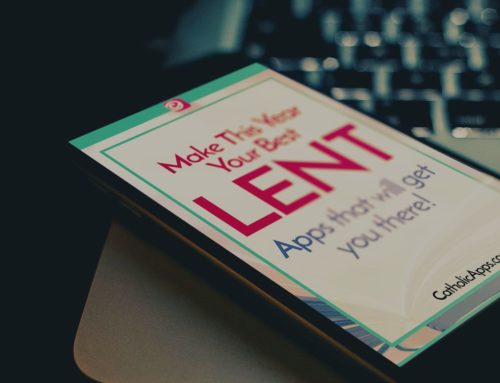 Make This Year
Your Best
LENT
Apps that will get
you there!
CatholicApps.co